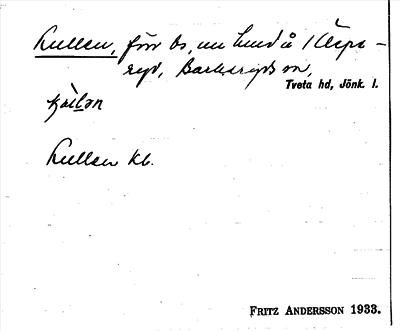 Kullen, förr bs, nu lund å 1 Kläpa-
ryd, Barkeryds sn,
Tveta hd, Jönk. l.
Kullen kb.
FRITZ ANDERSSON 1933.